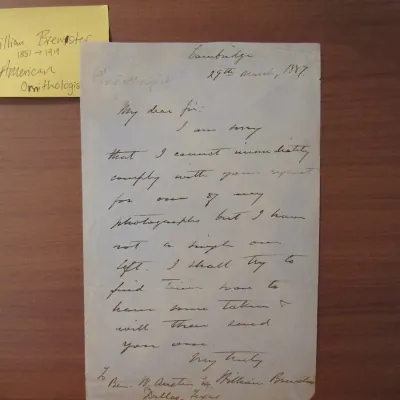 William Brewster
1851 → 1919
American
Ornithologist
Cambridge
29th March, 1887
Ornithologist
My dear Sir:
I am sorry
that I cannot immediately
comply with your request
for one of my
photographs but I have
not a single one
left. I shall try to
find time soon to
have some taken &
will then send
you one
Very truly
William Brewster
To Ben. W. Austin Esq
Dallas, Texas